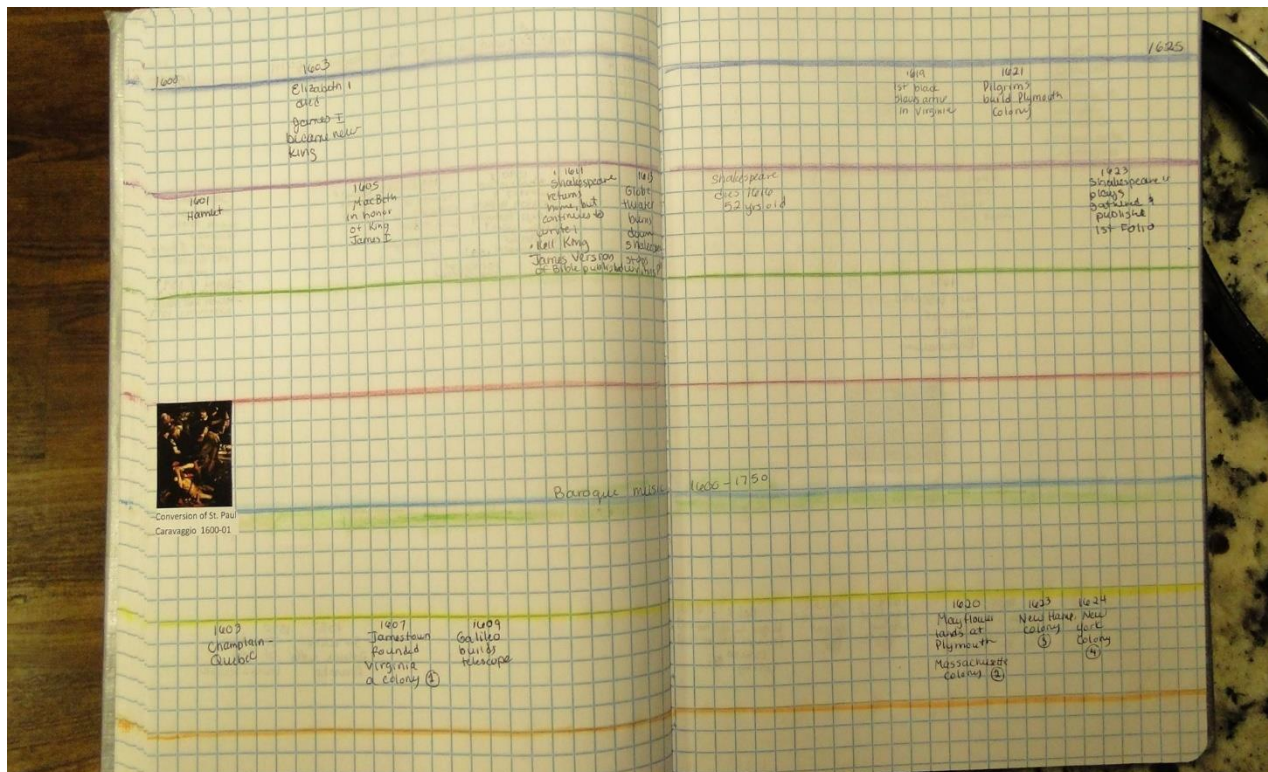 1600
1603
Elizabeth I
died
James I
became new
king
1625
1619
1st black
in Virginia
1621
Pilgrims
build Plymouth
Colony
1601
Hamlet
1605
MacBeth
in honor
of King
James I
1611
Shakespeare
returns
home, but
continues to
write
King
James Version
of Bible published
1613
Globe
theater
burns
down
stops
Shakespeare
dies 1616
52 yrs old
1623
Shakespeare's
plays
gathered &
publishe
1st Folio
Conversion of St. Paul
Caravaggio 1600-01
Baroque music 1600-1750
1603
Champlain-
Quebec
1607
Jamestown
founded
Virginia
a colony 1
1609
Galileo
builds
telescope
1620
Mayflower
lands at
Plymouth
Massachusetts
colony 2
1623
New Hamp.
colony
3
1624
New
York
Colony
4